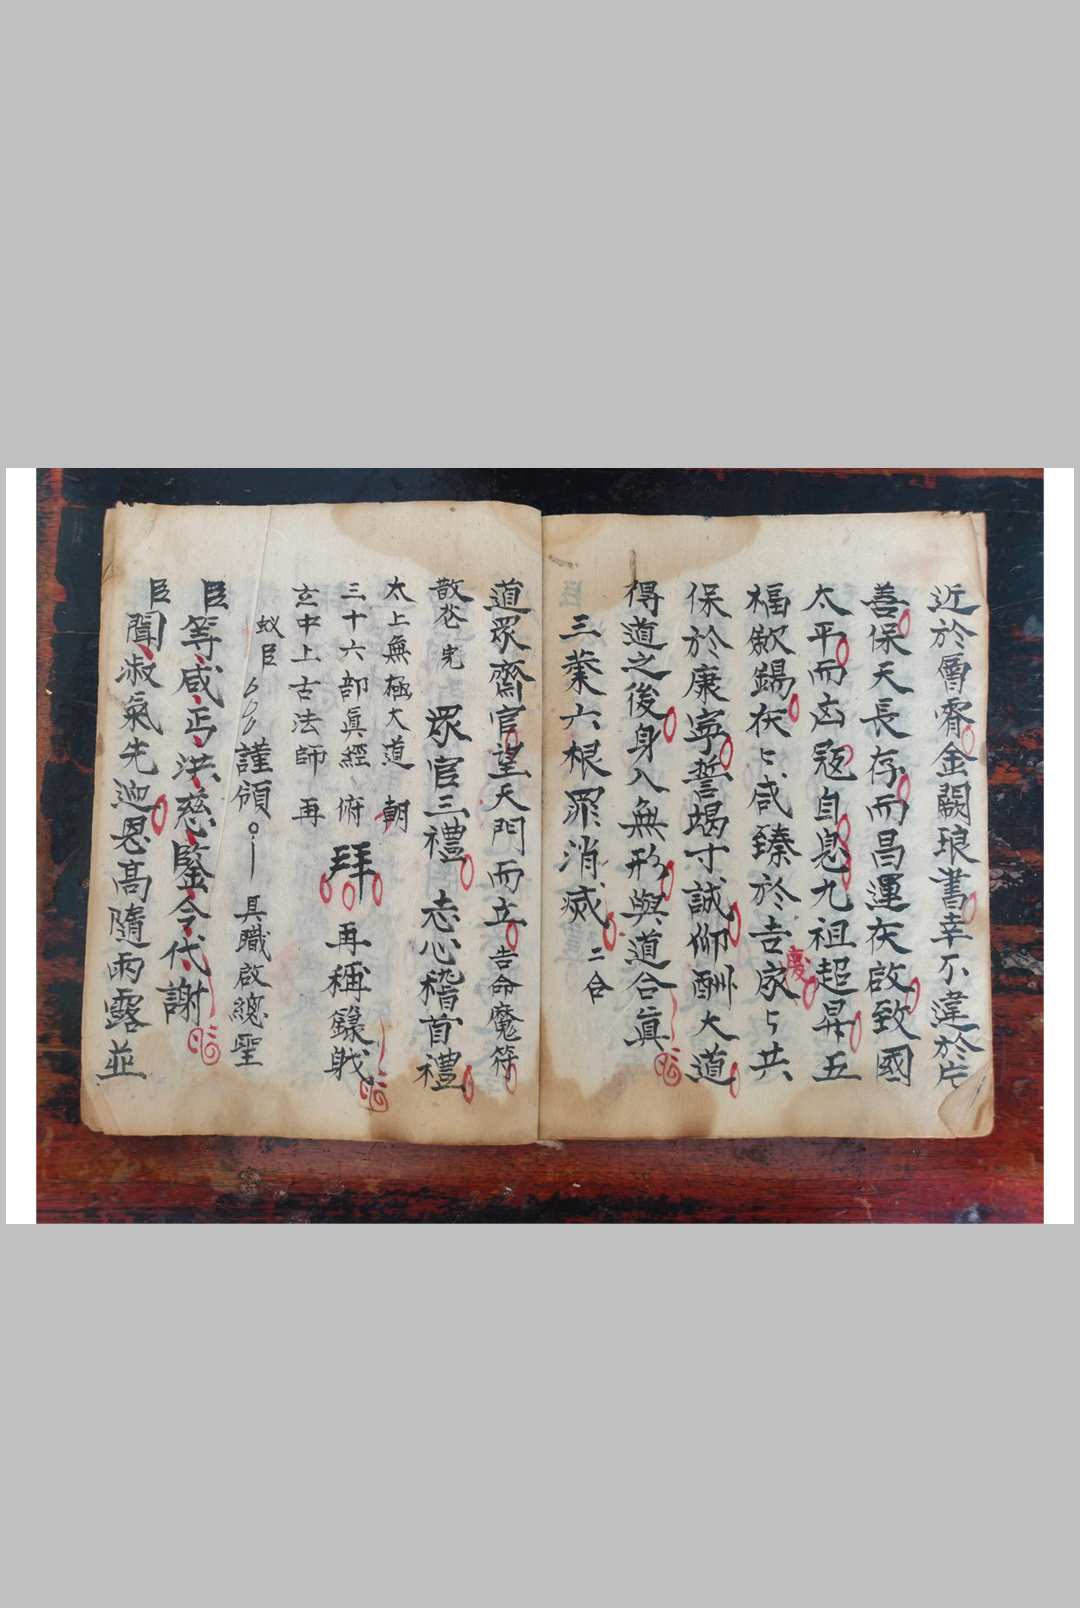 近於層霄金闕琅書幸不違於片
善保天長存而昌運在啟致國
太平而凶冦自息九祖超昇五
福歛錫灰〻咸臻於吉慶家〻共
保於康寧誓竭寸誠仰酬大道
得道之後身入無形與道合眞
三業六根罪消烕二合
道眾齋官望天門而立告命魔符
散花完 眾官三禮 志心稽首禮
太上無極大道 朝
三十六部眞經 俯
玄中上古法師 再
拜 再稱籙職
蟻臣 謹領 具職啟總聖
臣等咸丐洪慈鑒令代謝
臣聞淑氣先迎恩高隨雨露並